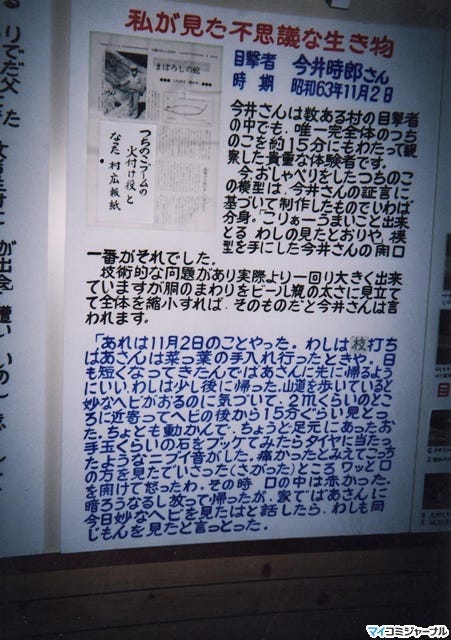 私が見た不思議な生き物
目撃者　今井時郎さん
時　期　昭和63年11月2日
まぼろしの蛇
つちのこブームの
火付け役と
なった村広報紙
今井さんは数ある村の目撃者
の中でも、唯一完全体のつち
のこを約15分にもわたって観
察した貴重な体験者です。
今、おしゃべりをしたつちのこ
の模型は、今井さんの証言に
基づいて制作したものでいわば
分身。「こりぁーうまいこと出来
とる わしの見たとおりや。模
型を手にした今井さんの開口
一番がそれでした。
技術的な問題があり実際より一回り大きく出来
ていますが胴のまわりをビール瓶の太さに見立て
て全体を縮小すれば、そのものだと今井さんは言
われます。
「あれは11月2日のことやった。わしは枝打ち
ばあさんは菜っ葉の手入れ行ったときや。日
も短くなってきたんでばあさんに先に帰るよう
にいい、わしは少し後に帰った。山道を歩いていると
妙なヘビがおるのに気づいて、2mくらいのとこ
ろに近寄ってヘビの後から15分ぐらい見とっ
た。ちょとも動かんで、ちょうど足元にあったお
手玉くらいの石をブッケてみたらタイヤに当たっ
たようなニブイ音がした。痛かったとみえてこっち
の方を見たでいさった(さがった)ところ ワッと口
を開けて怒ったわ。その時 口の中は赤かった。
暗ろうなるし放って帰ったが、家でばあさんに
今日妙なヘビを見たはと話したら、わしも同
じもんを見たと言っとった。
りでだ父
が出会
遭い
いのし
マイコミジャーナル